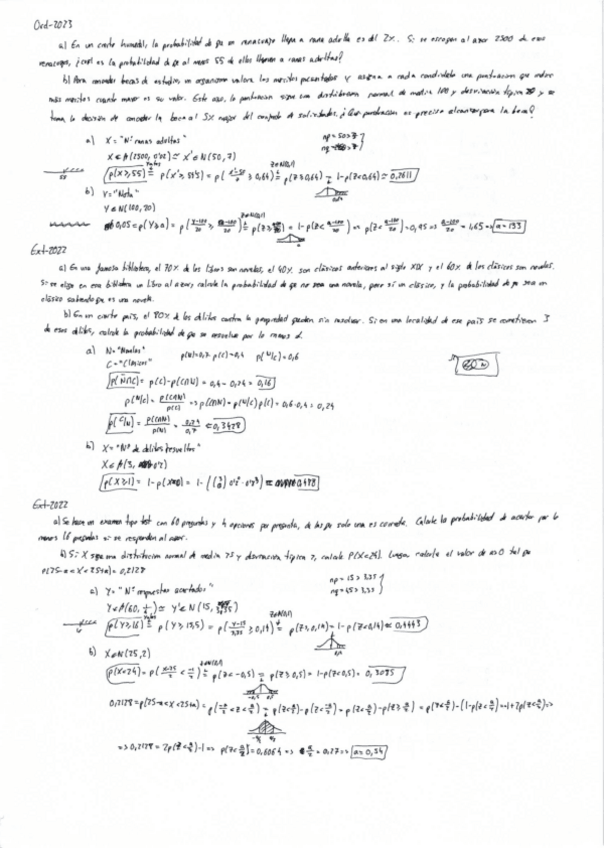 Ord-2023
a) En un cierto humedal, la probabilidad de que un renacuajo llegue a rana adulta es del 2%. Si se escogen al azar 2500 de esos
renacuajos, ¿cuál es la probabilidad de que al menos 55 de ellos lleguen a ranas adultas?
b) Para conceder becas de estudio, un organismo valora los méritos presentados y asigna a cada candidato una puntuación que indica
más méritos cuanto mayor es su valor. Este año, la puntuación sigue una distribución normal de media 100 y desviación típica 20 y se
toma la decisión de conceder la beca al 5% mejor del conjunto de solicitudes. ¿Qué puntuación es preciso alcanzar para la beca?
a) X = "Nº ranas adultas" np = 50 > 5
X ∈ β(2500, 0'02) ≈ X' ∈ N(50, 7)
p(X≥55) = p(X' ≥ 54'5) = p( ≥ 0,64) = p(Z ≥ 0,64) = 1-p(Z<0,64) = 0,2611
b) Y = "Nota"
Y ∈ N(100, 20)
0,05 = p(Y≥a) = p( ) = 1-p(Z< ) => p(Z< ) = 0,95 => = 1,65 => a = 133
Ext-2022
a) En una famosa biblioteca, el 70% de los libros son novelas, el 40% son clásicos anteriores al siglo XIX y el 60% de los clásicos son novelas.
Si se elige en esa biblioteca un libro al azar, calcule la probabilidad de que no sea una novela, pero sí un clásico, y la probabilidad de que sea un
clásico sabiendo que es una novela.
b) En un cierto país, el 80% de los delitos contra la propiedad quedan sin resolver. Si en una localidad de ese país se cometieron 3
de esos delitos, calcule la probabilidad de que se resuelva por lo menos 1.
a) N = "Novelas" p(N)=0,7 p(C)=0,4 p(N/C)=0,6
C = "Clásicos"
p(N̄∩C) = p(C)-p(C∩N) = 0,4-0,24 = 0,16
p(N/C) = p(C∩N)/p(C) => p(C∩N) = p(N/C) p(C) = 0,6·0,4 = 0,24
p(C/N) = p(C∩N)/p(N) = 0,24/0,7 = 0,3428
b) X = "Nº de delitos resueltos"
X ∈ β(3, 0'2)
p(X≥1) = 1-p(X=0) = 1- = 0,488
Ext-2022
a) Se hace un examen tipo test con 60 preguntas y 4 opciones por pregunta, de las que solo una es correcta. Calcule la probabilidad de acertar por lo
menos 16 preguntas si se responden al azar.
b) Si X sigue una distribución normal de media 25 y desviación típica 2, calcule P(X<24). Luego, calcule el valor de a>0 tal que
P(25-a<X<25+a)=0,2128
a) Y = "Nº respuestas acertadas" np = 15 >
Y ∈ β(60, 1/4) ≈ Y' ∈ N(15, ) nq = 45 >
p(Y≥16) = p(Y' ≥ 15,5) = p( ≥ 0,14) = p(Z≥0,14) = 1-p(Z<0,14) = 0,4443
b) X ∈ N(25, 2)
p(X<24) = p( ) = p(Z<-0,5) = p(Z≥0,5) = 1-p(Z<0,5) = 0,3085
0,2128 = p(25-a<X<25+a) = p(-a/2<Z<a/2) = p(Z<a/2)-p(Z<-a/2) = p(Z<a/2)-p(Z≥a/2) = p(Z<a/2)-(1-p(Z<a/2)) = -1+2p(Z<a/2) =>
=> 0,2128 = 2p(Z<a/2)-1 => p(Z<a/2) = 0,6064 => a/2 = 0,27 => a = 0,54